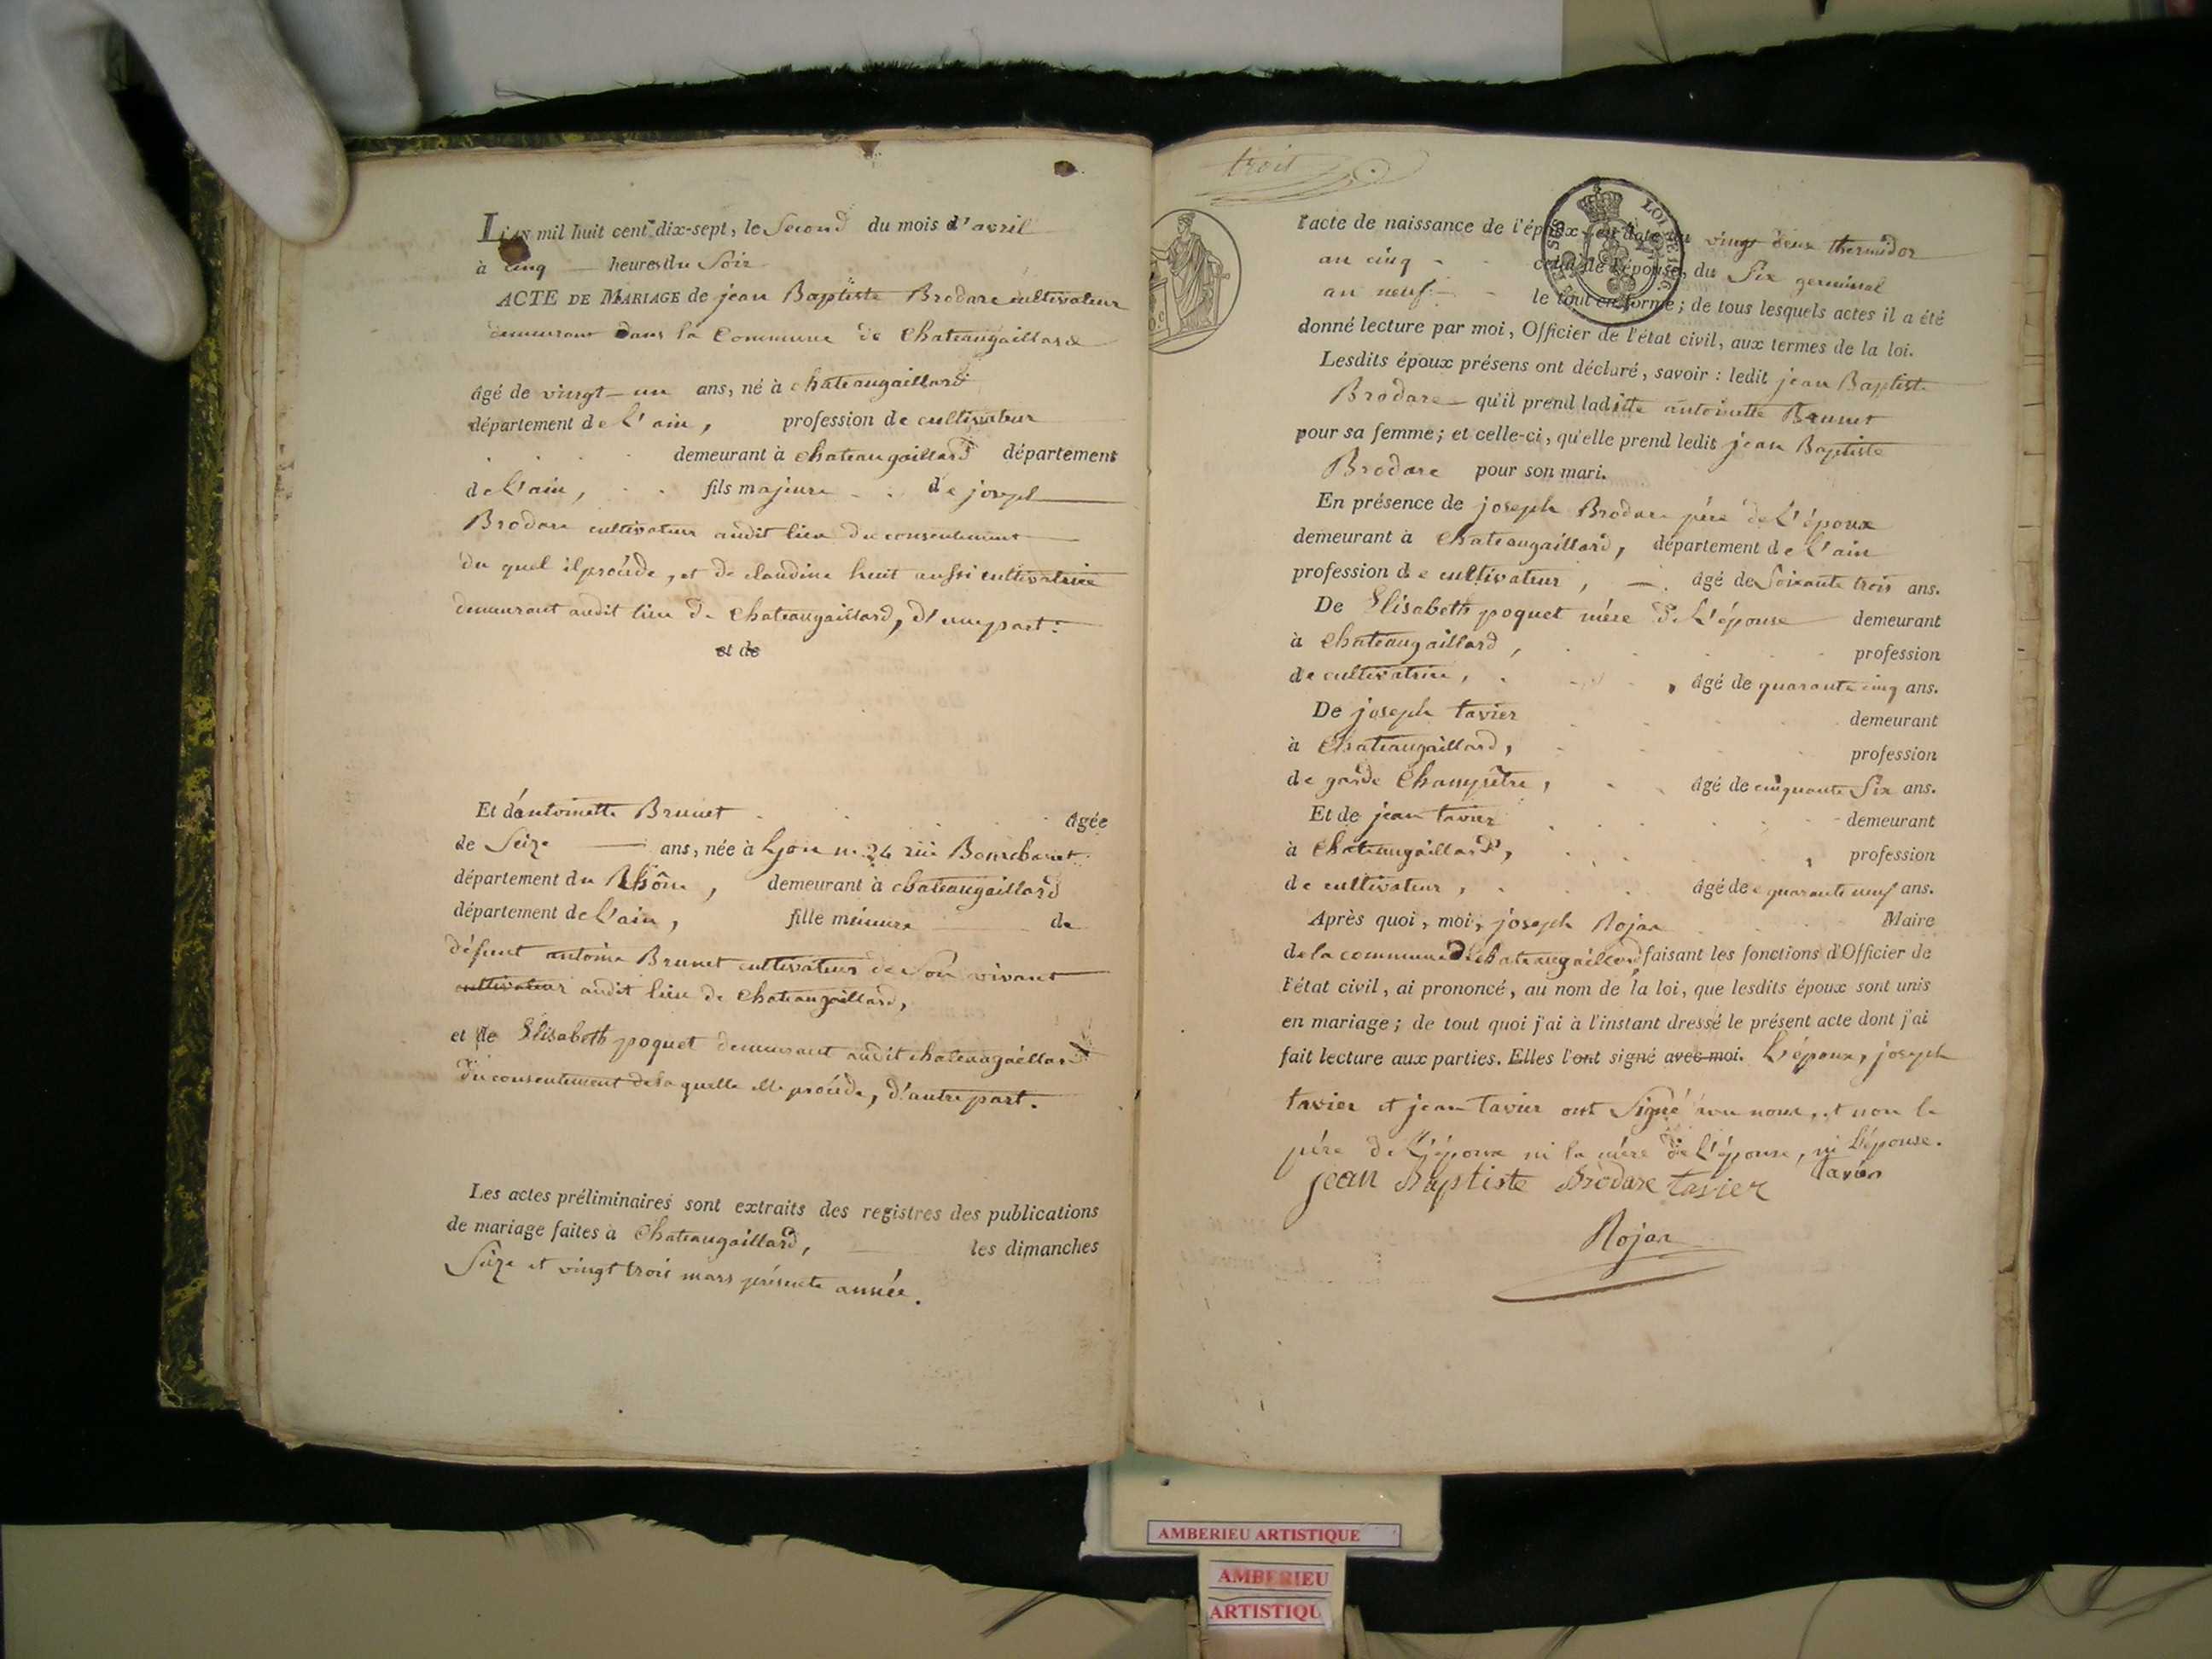 L'AN mil huit cent dix-sept, le Second du mois d'avril
à cinq heures du Soir
ACTE DE MARIAGE de jean Baptiste Brodare cultivateur
demeurant dans la Commune de Chateaugaillard
âgé de vingt-un ans, né à chateaugaillard
département de L'ain, profession de cultivateur
demeurant à chateaugaillard département
de L'ain, fils majeure de joseph
Brodare cultivateur audit lieu du consentement
du quel il procède, et de claudine huit aussi cultivatrice
demeurant audit lieu de Chateaugaillard, d'une part.
et de
Et d'antoinette Brunet âgée
de Seize ans, née à Lyon n. 24 rüe
département du Rhône, demeurant à chateaugaillard
département de L'ain, fille mineure de
défunt antoine Brunet cultivateur de Son vivant
cultivateur audit lieu de Chateaugaillard,
et de Elisabeth poquet demeurant audit chateaugaillard
du consentement de la quelle elle procède, d'autre part.
Les actes préliminaires sont extraits des registres des publications
de mariage faites à Chateaugaillard, les dimanches
Seize et vingt trois mars présente année.
troit
LOI DE 1816
l'acte de naissance de l'époux en date du vingt deux thermidor
an cinq celui de l'épouse, du Six germinal
an neuf le tout en forme; de tous lesquels actes il a été
donné lecture par moi, Officier de l'état civil, aux termes de la loi.
Lesdits époux présens ont déclaré, savoir: ledit jean Baptiste
Brodare qu'il prend ladite antoinette Brunet
pour sa femme; et celle-ci, qu'elle prend ledit jean Baptiste
Brodare pour son mari.
En présence de joseph Brodare père de L'époux
demeurant à Chateaugaillard, département de L'ain
profession de cultivateur, âgé de Soixante trois ans.
De Elisabeth poquet mère de L'épouse demeurant
à Chateaugaillard, profession
de cultivatrice, âgé de quarante cinq ans.
De joseph tavier demeurant
à Chateaugaillard, profession
de garde Champêtre, âgé de cinquante Six ans.
Et de jean tavier demeurant
à Chateaugaillard, profession
de cultivateur, âgé de quarante neuf ans.
Après quoi, moi, joseph Rojan Maire
de la commune de Chateaugaillard faisant les fonctions d'Officier de
l'état civil, ai prononcé, au nom de la loi, que lesdits époux sont unis
en mariage; de tout quoi j'ai à l'instant dressé le présent acte dont j'ai
fait lecture aux parties. Elles l'ont signé avec moi. L'époux, joseph
tavier et jean tavier ont Signé avec nous, et non le
père de L'époux ni la mère de L'épouse, ni L'épouse.
jean Baptiste Brodare tavier tavier
Rojan
AMBERIEU ARTISTIQUE
AMBERIEU
ARTISTIQU